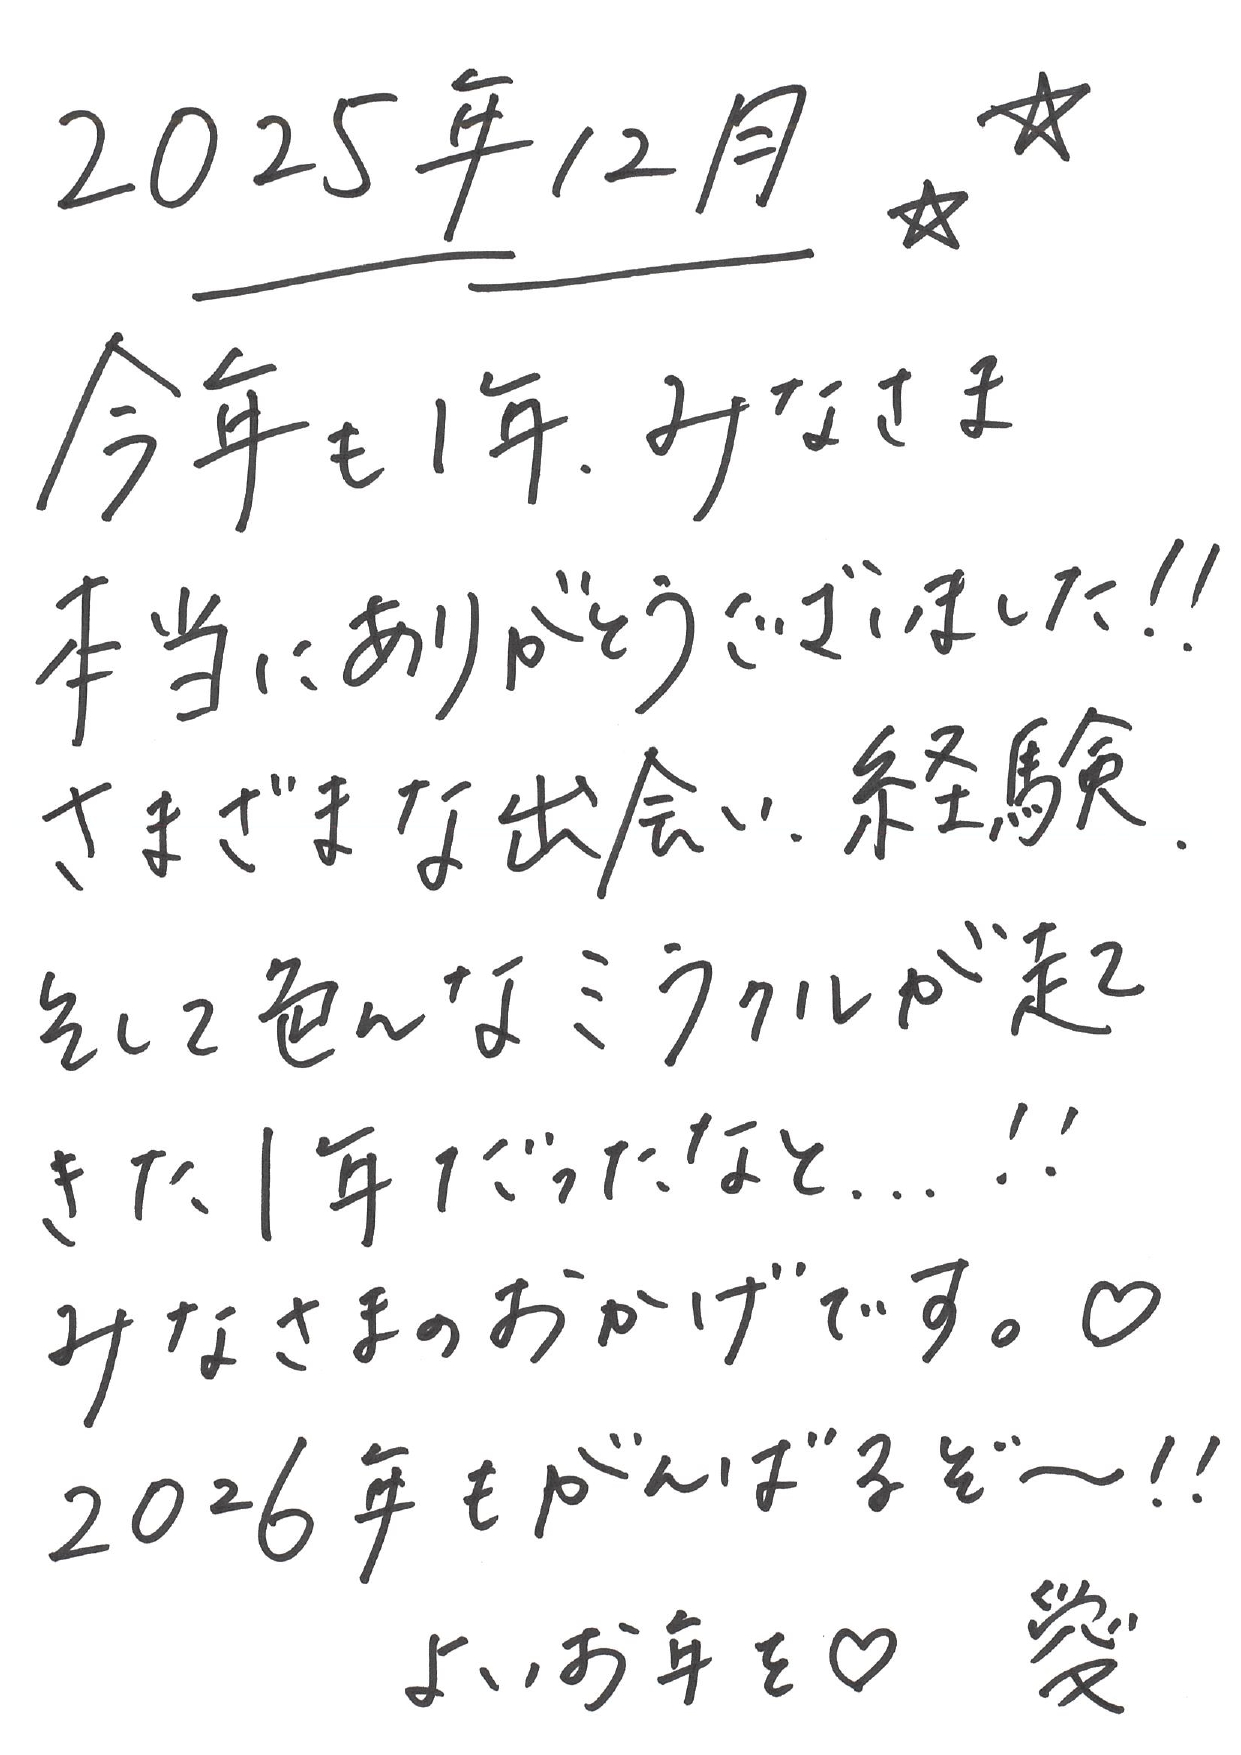 2025年12月 ☆
☆
今年も1年、みなさま
本当にありがとうございました!!
さまざまな出会い、経験、
そして色んなミラクルが起て
きた1年だったなと...!!
みなさまのおかげです。♡
2026年もがんばるぞ〜!!
よいお年を♡ 愛